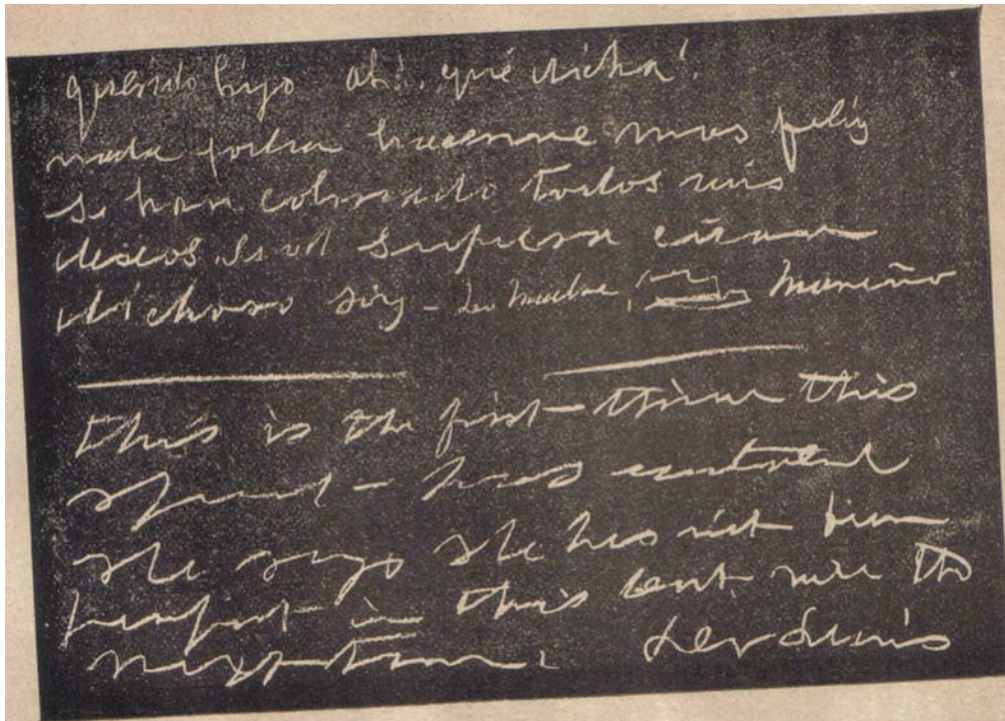 querido hijo ah! qué dicha!
nada podria hacerme mas feliz
se han colmado todos mis
deseos. Si vd supiera cúan
dichoso soy - su madre Mariño
this is the first time this
spirit has control
she says she has not been
perfect in this cent. will the
next time.